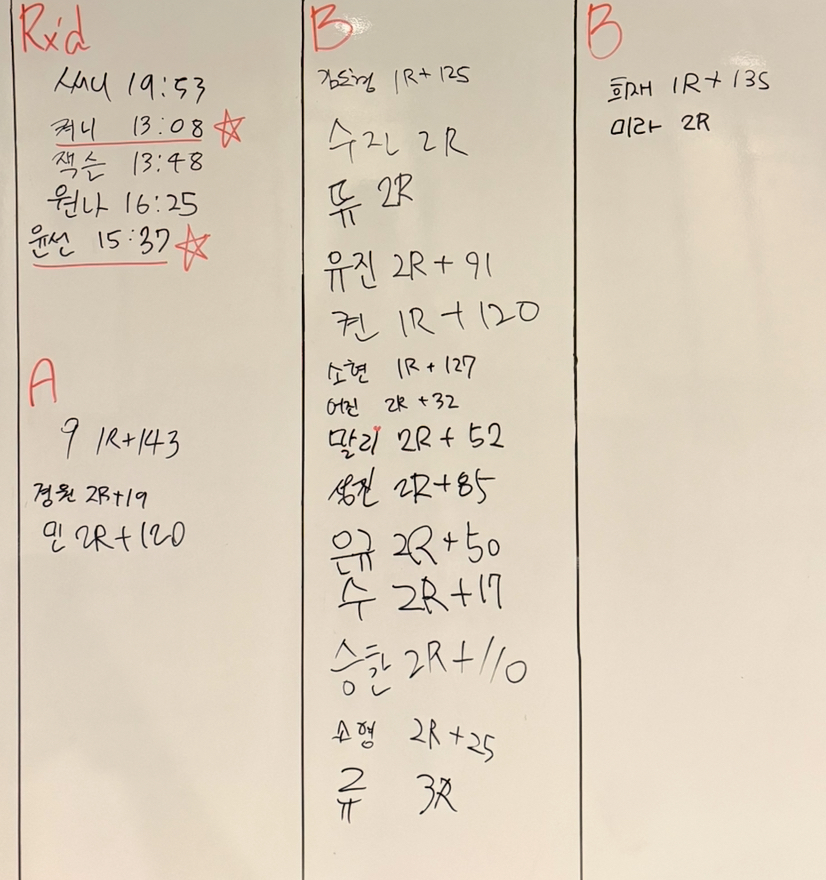 Rx'd
써니 19:53
켜니 13:08 ☆
잭슨 13:48
원나 16:25
윤선 15:37 ☆
A
9 1R+143
경원 2R+19
민 2R+120
B
김도형 1R+125
수진 2R
뜌 2R
유진 2R+91
켠 1R+120
소현 1R+127
어진 2R+32
말리 2R+52
성진 2R+85
은규 2R+50
수 2R+17
승한 2R+110
소형 2R+25
큐 3R
B
희재 1R+135
미라 2R